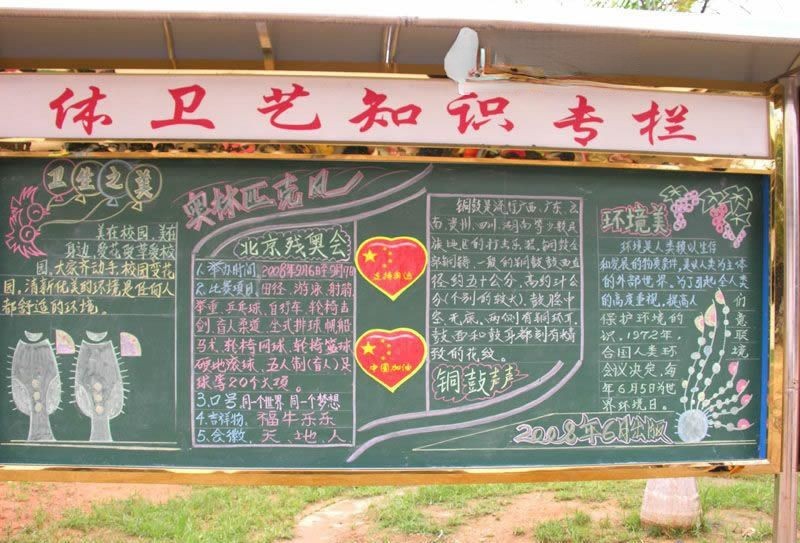 体卫艺知识专栏
卫生之美
美在校园,美在
身边,爱花爱草爱校
园,大家齐动手,校园变花
园,清新优美的环境是任何人
都舒适的环境。
奥林匹克风
北京残奥会
1.举办时间:2008年9月6日-9月17日
2.比赛项目:田径、游泳、射箭
举重、乒乓球、自行车、轮椅击
剑、盲人柔道、坐式排球、帆船
马术、轮椅网球、轮椅篮球
硬地滚球、五人制(盲人)足
球等20个大项。
3.口号:同一个世界 同一个梦想
4.吉祥物:福牛乐乐
5.会徽:天、地、人
迎接奥运
中国加油
铜鼓是流行广西、广东、云
南、贵州、四川、湖南等少数民
族地区的打击乐器,铜鼓全
部铜铸,一般的铜鼓鼓面直
径约五十公分,高约廿十
公分(个别的较大),鼓腔中
空,无底,两侧有铜环耳,
鼓面和鼓身都刻有精
致的花纹。
铜鼓声声
2008年6月出版
环境美
环境是人类赖以生存
和发展的物质条件,是以人类为主体
的外部世界,为了引起全人类
的高度重视,提高人们
保护环境的意
识,1972年,联
合国人类环境
会议决定,每
年6月5日为世
界环境日。